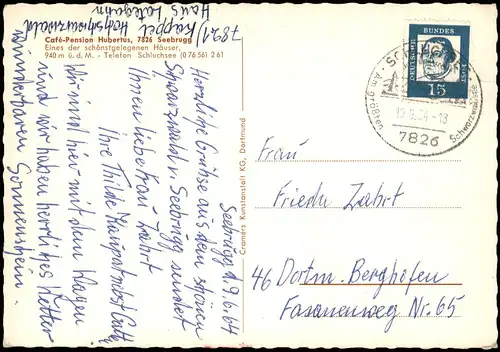 7821 Kappel
Hochschwarzwald
Haus
Café-Pension Hubertus, 7826 Seebrugg
Eines der schönstgelegenen Häuser,
940 m ü.d.M. - Telefon Schluchsee (0 76 56) 2 61
Seebrugg 19.6.64
Herzliche Grüße aus dem schönen
Schwarzwald v. Seebrugg sendet
Ihnen liebe Frau Zahrt
Ihre Thilde
Wir sind hier mit dem Wagen
und wir haben herrliches Wetter
wunderbaren Sonnenschein.
Cramers Kunstanstalt KG, Dortmund
DEUTSCHE BUNDESPOST
15
Am größten Schwarzwaldsee
-13
7826
Frau
Friedn Zahrt
46 Dortm. Berghofen
Fasanenweg Nr. 65